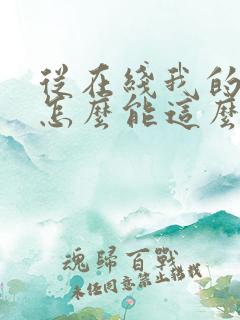 從在綫我的
怎麽能這麽
魂歸百戰
未經同意禁止轉載